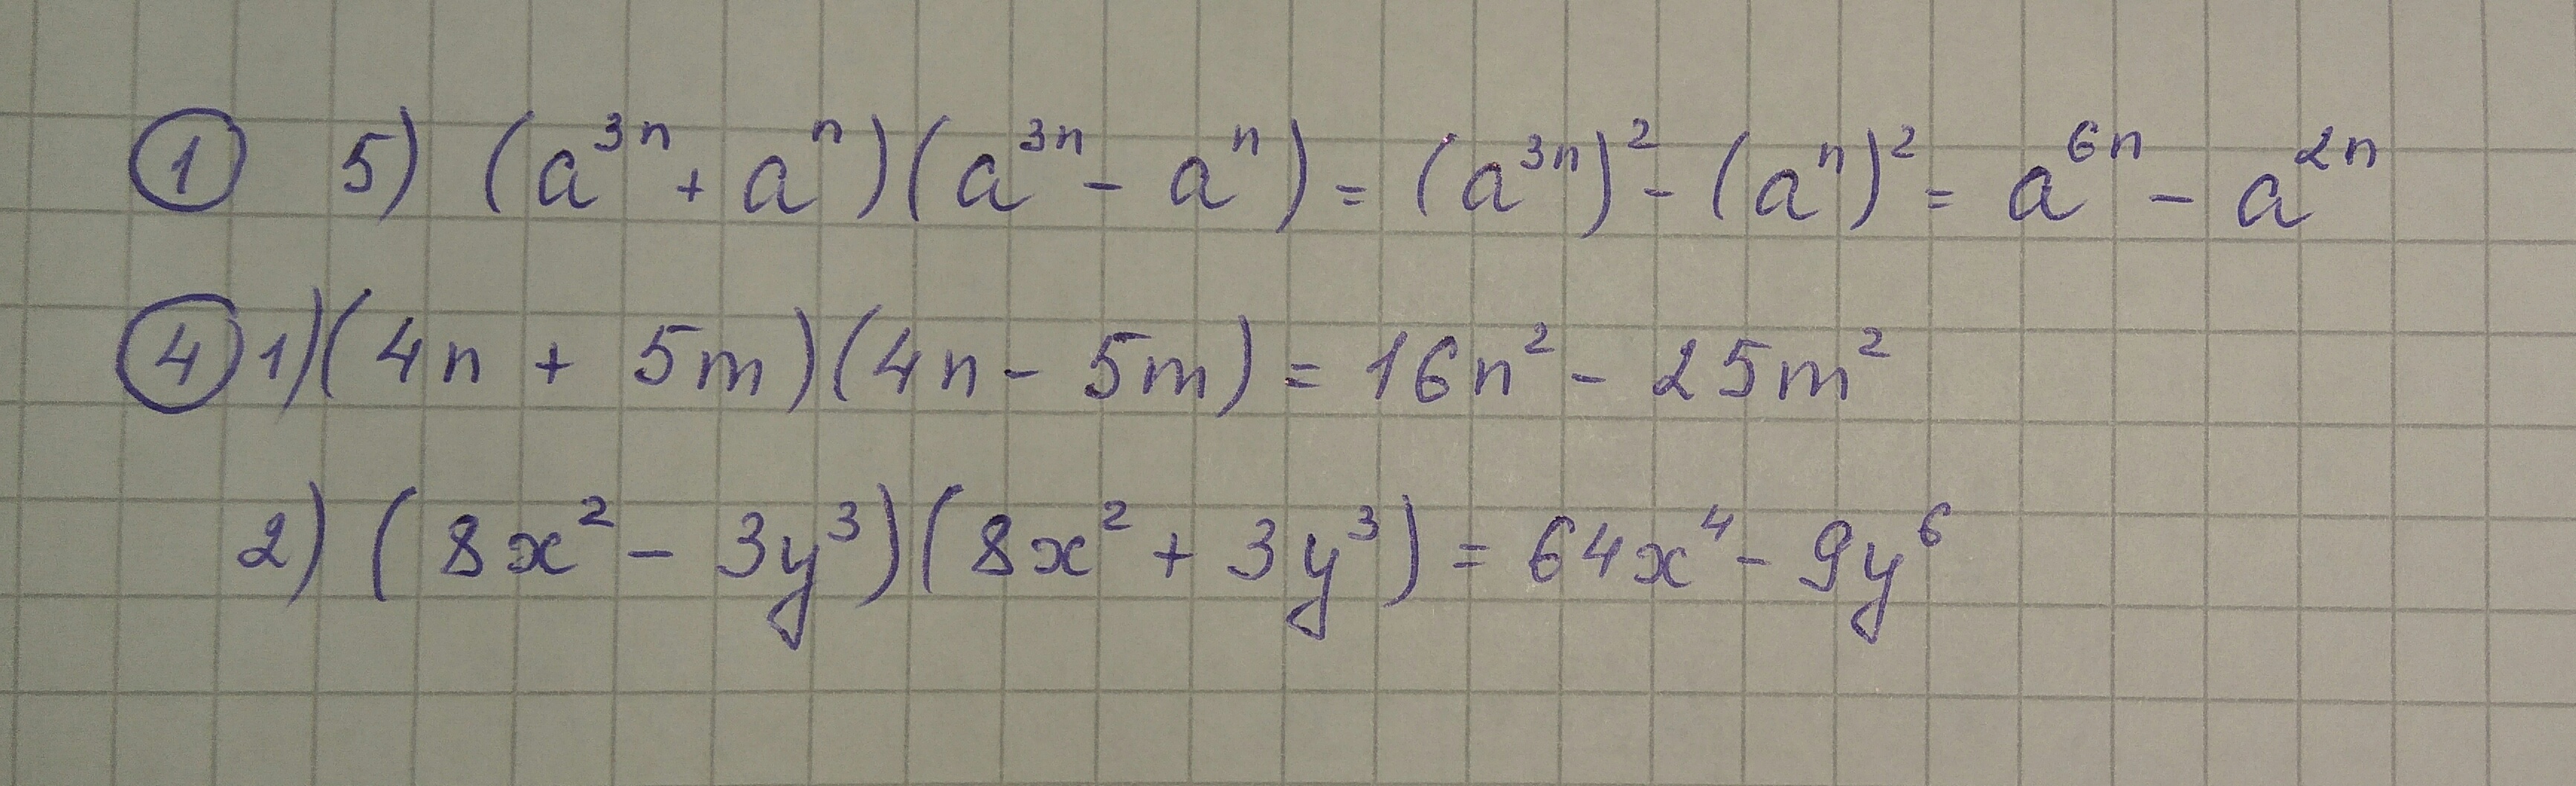 ① 5) (a³ⁿ + aⁿ)(a³ⁿ - aⁿ) = (a³ⁿ)² - (aⁿ)² = a⁶ⁿ - a²ⁿ
④ 1) (4n + 5m)(4n - 5m) = 16n² - 25m²
2) (8x² - 3y³)(8x² + 3y³) = 64x⁴ - 9y⁶